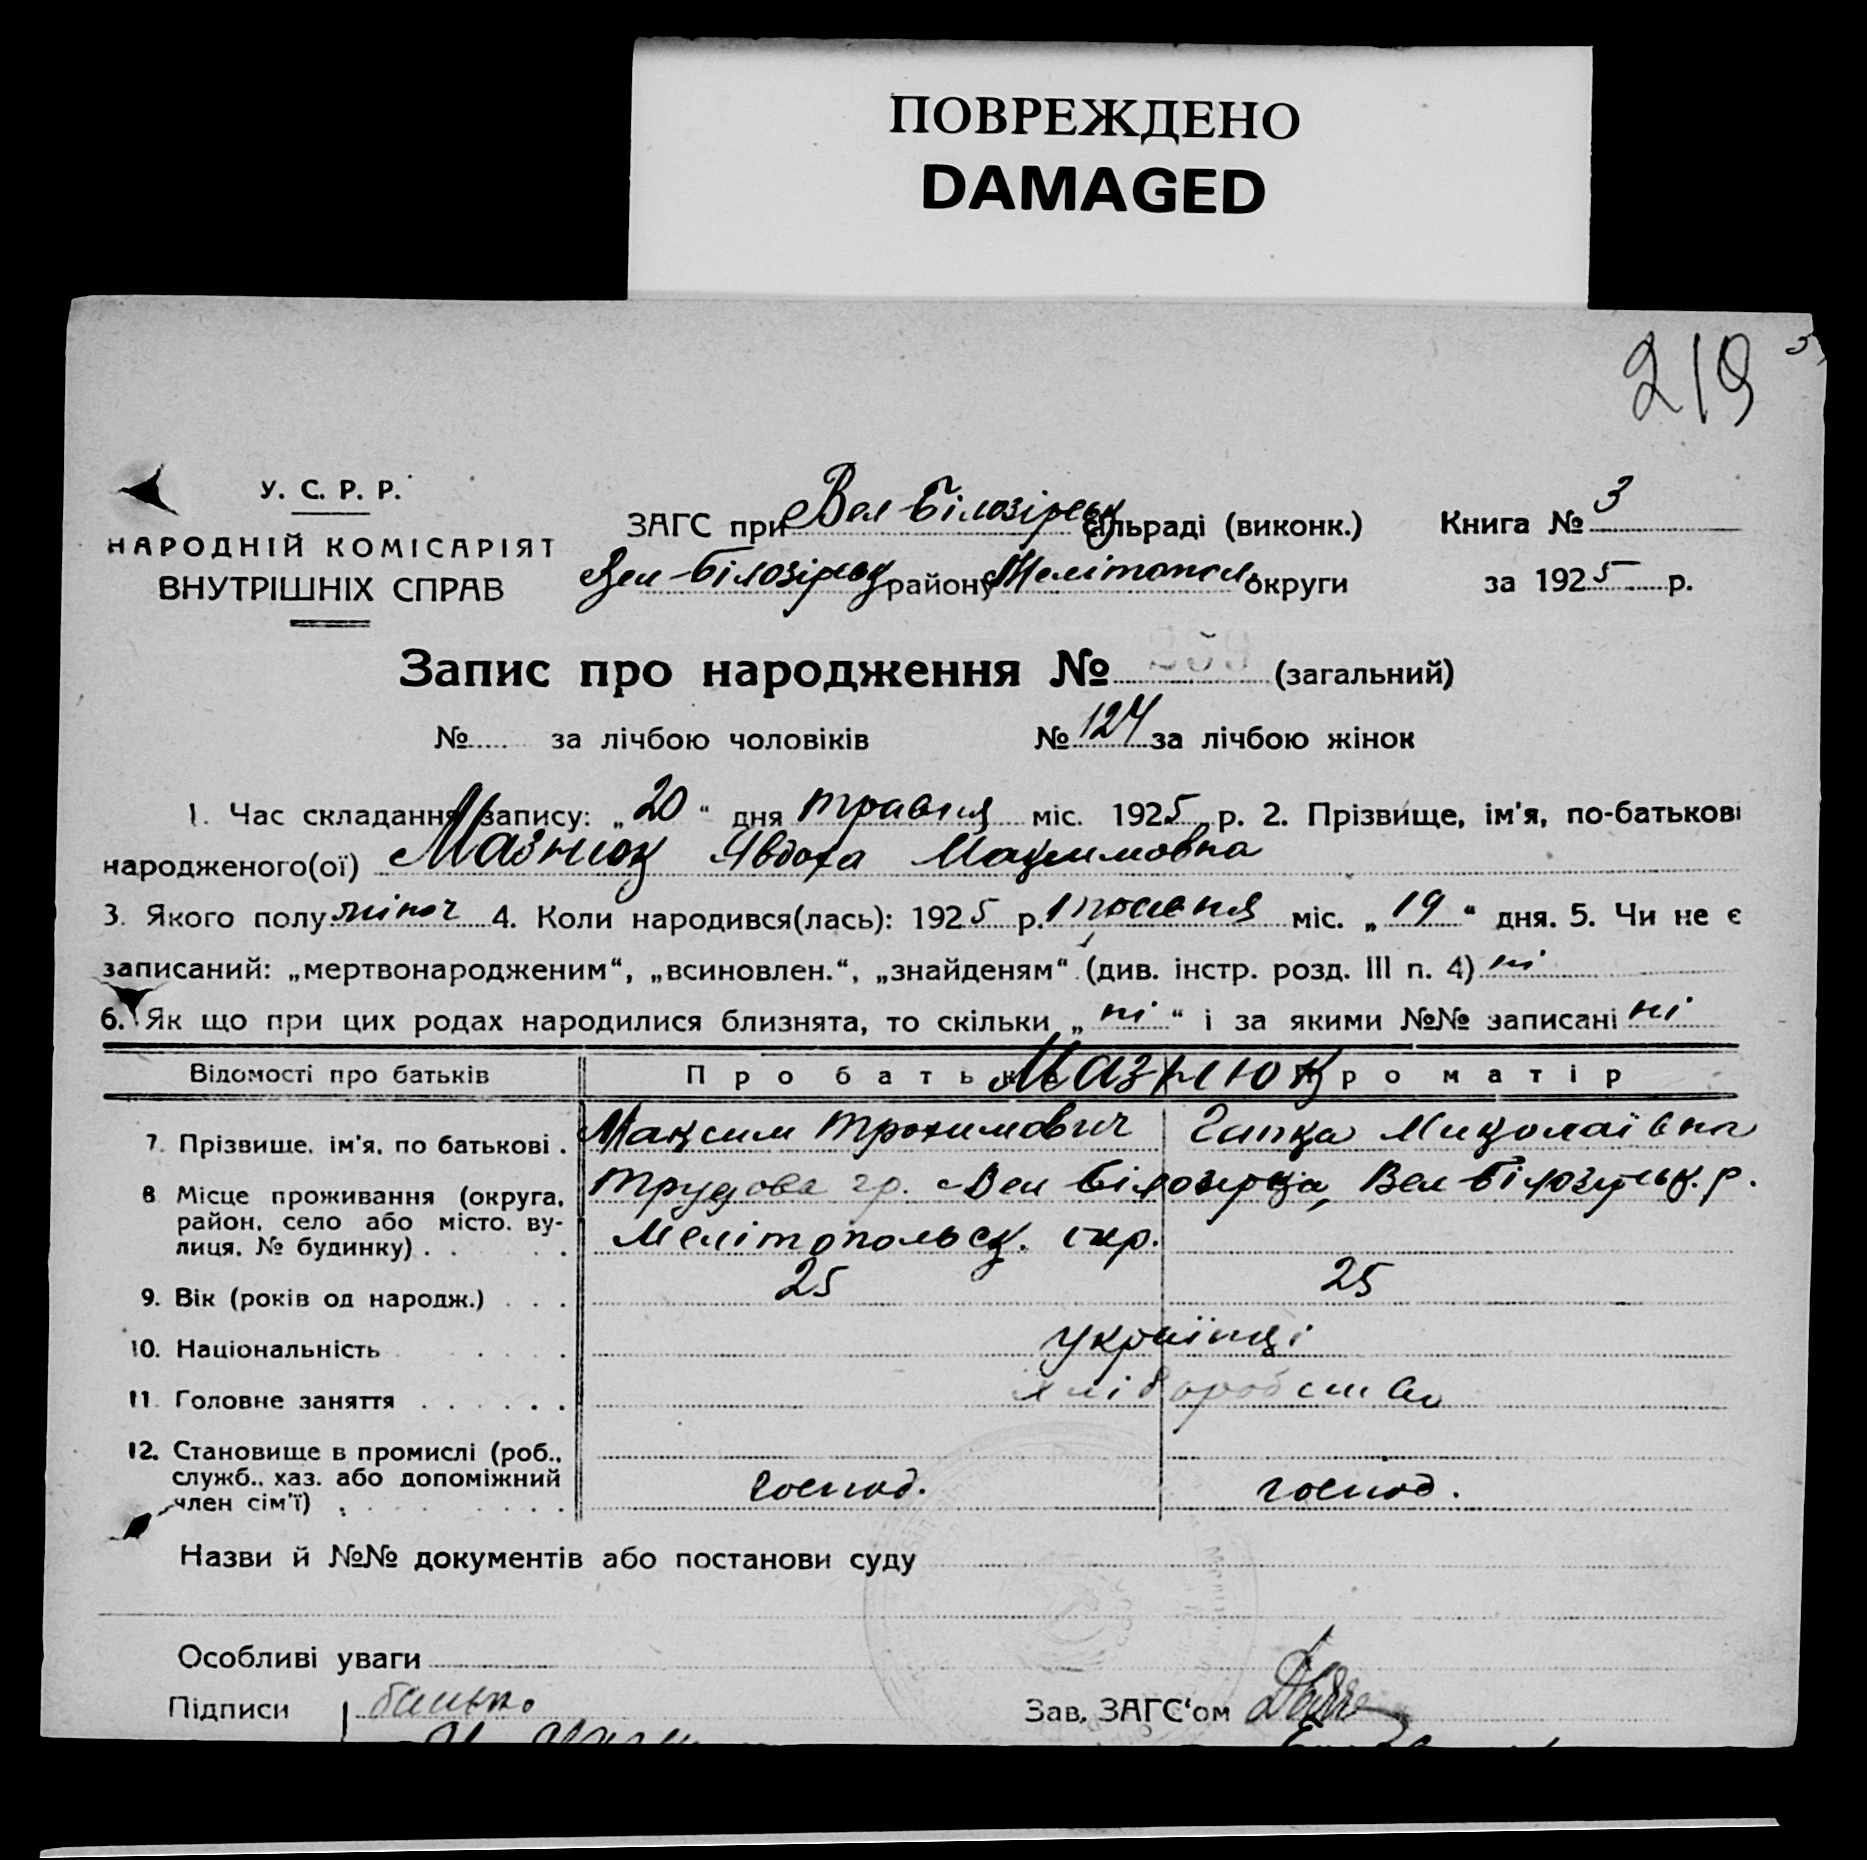 ПОВРЕЖДЕНО
DAMAGED
219
У. С. Р. Р.
НАРОДНІЙ КОМІСАРІЯТ
ВНУТРІШНІХ СПРАВ
ЗАГС при Вел-Білозірськ сільраді (виконк.) Книга № 3
Вел-Білозірськ району Мелітопол. округи за 1925 р.
Запис про народження № (загальний)
№ за лічбою чоловіків № 124 за лічбою жінок
1. Час складання запису: „20“ дня травня міс. 1925 р. 2. Прізвище, ім'я, по-батькові
народженого(ої) Мазнюк Явдоха Максимовна
3. Якого полу жіноч 4. Коли народився(лась): 1925 р. травня міс. „19“ дня. 5. Чи не є
записаний: „мертвонародженим“, „всиновлен.“, „знайденям“ (див. інстр. розд. III п. 4) ні
6. Як що при цих родах народилися близнята, то скільки „ні“ і за якими №№ записані ні
Відомості про батьків Про батька Мазнюк Про матір
7. Прізвище, ім'я, по батькові . Максим Трохимович Гапка Миколаївна
8 Місце проживання (округа, район, село або місто, вулиця, № будинку) . . . . Трудова гр. Вел Білозірка, Вел-Білозірськ. р.
Мелітопольськ. окр.
9. Вік (років од народж.) . . . 25 25
10. Національність українці
11. Головне заняття . . . . . . хліборобство
12. Становище в промислі (роб.,
служб., хаз. або допоміжний
член сім'ї) господ. господ.
Назви й №№ документів або постанови суду
Особливі уваги
Підписи батько Зав. ЗАГС'ом